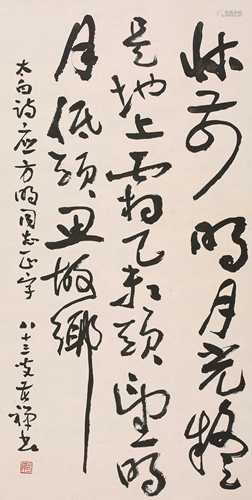 床前明月光疑
是地上霜举头望明
月低头思故乡
太白诗应方明同志正字
八十三叟苦禅书